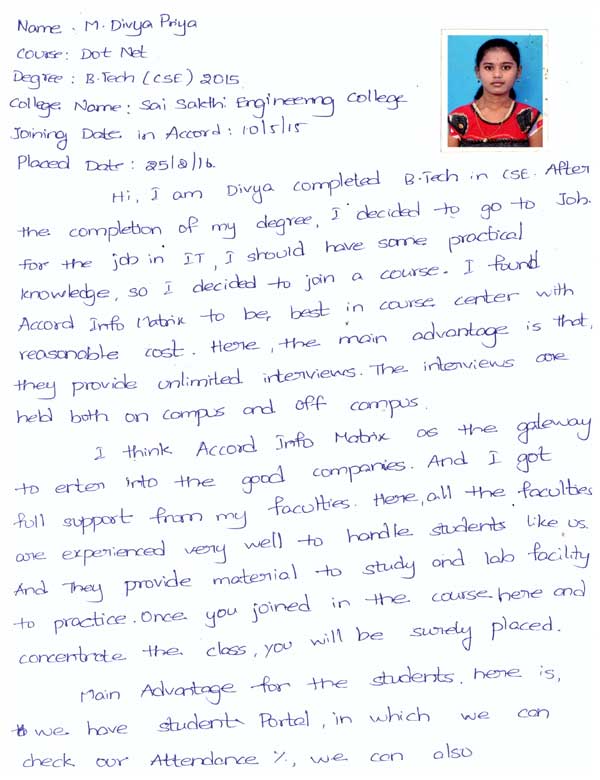 Name : M. Divya Priya
Course: Dot Net
Degree : B.Tech (CSE) 2015
College Name: Sai Sakthi Engineering College
Joining Date in Accord : 10/5/15
Placed Date : 25/2/16.
Hi, I am Divya completed B.Tech in CSE. After
the completion of my degree, I decided to go to Job.
for the job in IT, I should have some practical
knowledge, so I decided to join a course. I found
Accord Info Matrix to be, best in course center with
reasonable cost. Here, the main advantage is that,
they provide unlimited interviews. The interviews are
held both on campus and off campus.
I think Accord Info Matrix as the gateway
to enter into the good companies. And I got
full support from my faculties. Here, all the faculties
are experienced very well to handle students like us.
And They provide material to study and lab facility
to practice. Once you joined in the course here and
concentrate the class, you will be surely placed.
Main Advantage for the students, here is,
we have student Portal, in which we can
check our Attendance %, we can also